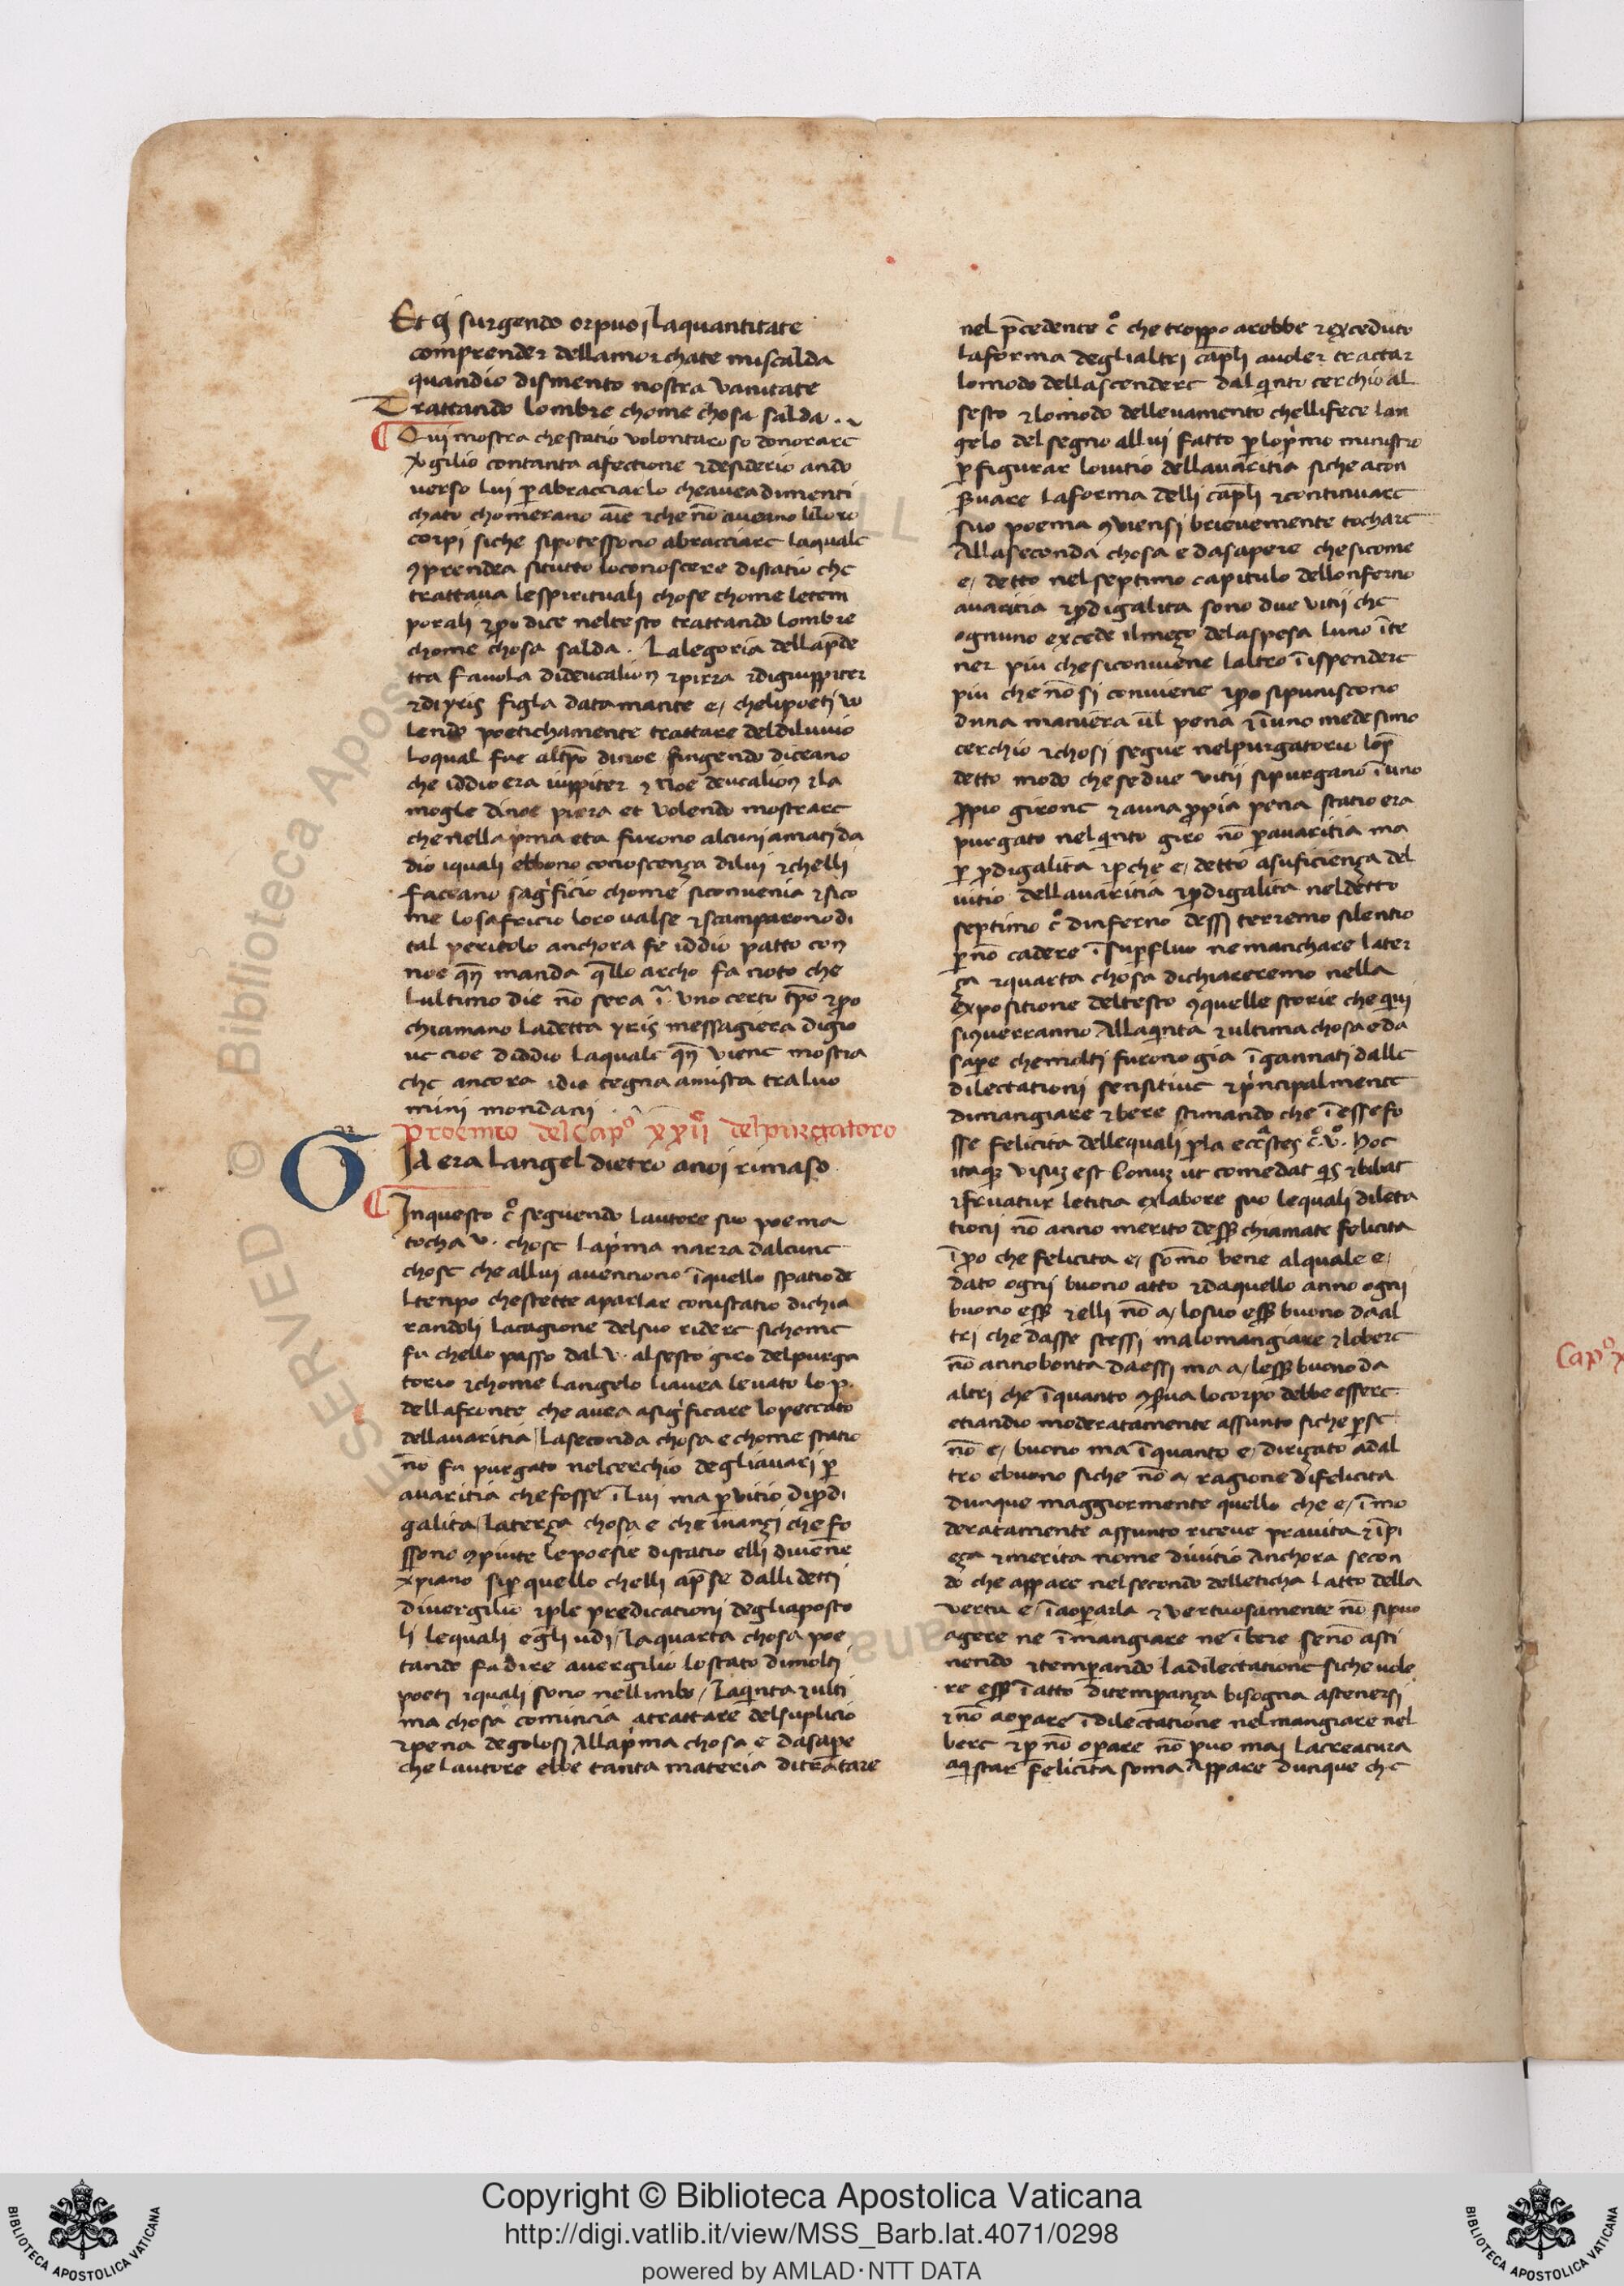 Et q̄ surgendo or puoi laquantitate
comprender dellamor chate miscalda
quandio dismento nostra vanitate
Trattando lombre chome chosa salda
Qui mostra chestatio volontaroso donorare
v̄gilio contanta afectione ⁊desiderio ando
verso lui ꝑabracciarlo cheavea dimenti
chato chomerano aīe ⁊che nō aveano liloro
corpi siche sipotessono abracciare laquale
ꝯprendea situtto loconoscere distatio che
trattava lespirituali chose chome letem
porali ⁊ꝑo dice neltesto trattando lombre
chome chosa salda . Lalegoria dellap̄de
tta favola dideucalion ⁊pirra ⁊digiuppiter
⁊diyris figla datamante e, chelipoeti vo
lendo poetichamente trattare deldiluvio
loqual fue altp̄o dinoe fingendo diceano
che iddio era iuppiter ⁊ noe deucalion ⁊la
mogle dinoe pirra et volendo mostrare
chenella p̍ma eta furono alcuni amati da
dio iquali ebbono conoscenza dilui ⁊chelli
faceano sag̍ficio chome siconvenia ⁊sico
me losafricio loro valse ⁊scamparono di
tal pericolo anchora fe iddio patto con
noe qn̄ manda q̄llo archo fa noto che
lultimo die nō sera ī uno certo tp̄o ⁊ꝑo
chiamano ladetta yris messagiera digio
ve cioe diddio laquale qn̄ viene mostra
che ancora idio tegna amista traluo
mini mondani
Proemio del Cap° xxii° del purgatoro
GIA era langel dietro anoi rimaso
Inquesto c° seguendo lautore suo poema
tocha v. chose lap̍ma narra dalcune
chose che allui avenciono īquello spatio de
ltenpo chestette aparlar constatio dichia
randoli lacagione delsuo ridere sichome
fu chello passo dal v. alsesto giro delpurga
torio ⁊chome langelo liavea levato lo p.
dellafronte che avea asig̍ficare lopeccato
dellavaritia laseconda chosa e chome statio
no fu purgato nelcerchio degliavari ꝑ
avaritia chefosse ī lui ma ꝑvitio diꝓdi
galita laterza chosa e che īnanzi che fo
ssono ꝯpiute lepoesie distatio elli divenē
xp̄iano sip̄ quello chelli ap̄se dalli detti
divergilio ⁊ple predicationi degliaposto
li lequali egli udi, laquarta chosa poe
tando fa dire avergilio lostato dimolti
poeti iquali sono nellimbo, laq̍nta ⁊ulti
ma chosa comincia atrattare delsuplicio
⁊pena degolosi Allap̍ma chosa e dasape
che lautore ebbe tanta materia ditractare
nel p̄cedente c° che troppo arebbe ⁊xceduto
laforma deglialtri cap̄li avoler tractar
lomodo dellascendere dal q̍nto cerchio al
sesto ⁊lomodo dellevamento chellifece lan
gelo delsegno allui fatto ꝑ lop̍mo ministro
ꝑfigurar lovitio dellavaritia siche acon
ẜvare laforma delli cap̄li ⁊continuare
suo poema ꝯviensi brievemente tochare
Allaseconda chosa e dasapere chesicome
e, detto nelseptimo capitulo dellonferno
avaritia ⁊ꝓdigalita sono due vitii che
ognuno excede ilmezo delaspesa luno īte
ner piu chesiconviene laltro īispendere
piu che nōsi conviene ⁊ꝑo sipuniscono
duna maniera ūl pena ⁊īuno medesimo
cerchio ⁊chosi segue nelpurgatorio lop̄
detto modo chesedue vitii sipurgano īuno
ꝓpio girone ⁊auna ꝓpia pena statio era
purgato nel q̍nto giro nō ꝑavaritia ma
ꝑ ꝓdigalita ⁊ꝑche e, detto asuficienza del
vitio dellavaritia ⁊ꝓdigalita neldetto
septimo c° dinferno dessi terremo silentio
ꝑ nō cadere ī suꝑfluo ne manchare later
za ⁊quarta chosa dichiareremo nella
expositione deltesto ꝯquelle storie che qui
siꝯverranno Allaq̍nta ⁊ultima chosa e da
saꝑe chemolti furono gia īgannati dalle
dilectationi sensitive ⁊p̍ncipalmente
dimangiare ⁊bere stimando che ī essefo
sse felicita dellequali ꝑla eccl̄astes c° v° hoc
itaqꝫ visuꝫ est bonuꝫ ut comedat q̍s ⁊bibat
⁊fruatur letitia exlabore suo lequali dilecta
tioni nō anno merito dessẽ chiamate felicita
īꝑo che felicita e, sōmo bene alquale e,
dato ogni buono atto ⁊daquello anno ogni
buono essẽ ⁊elli nō a, losuo essẽ buono daal
tri che dasse stessi malomangiare ⁊lobere
nō anno bonta daessi ma a, lessẽ buono da
altri che īquanto ꝯẜva locorpo debbe essere
etiandio moderatamente assunto siche ꝑse
nō e, buono ma īquanto e, dirizato adal
tro ebuono siche nō a, ragione difelicita
dunque maggiormente quello che e, īmo
deratamente assunto riceve pravita ⁊īpi
eza ⁊merita nome divitio Anchora secon
do che appare nelsecondo delleticha latto della
vertu e, īaoꝑarla ⁊vertuosamente nō sipuo
agere ne īmangiare ne ībere senō asti
nendo ⁊temꝑando ladilectatione siche vole
re essẽ īatto ditemꝑanza bisogna astenersi
⁊nō aoꝑare īdilectatione nelmangiare nel
bere ⁊ꝑ nō oꝑare nō puo mai lacreatura
aq̍star felicita soma Appare dunque che
Cap°
Copyright © Biblioteca Apostolica Vaticana
http://digi.vatlib.it/view/MSS_Barb.lat.4071/0298
powered by AMLAD·NTT DATA
BIBLIOTECA APOSTOLICA VATICANA
BIBLIOTECA APOSTOLICA VATICANA